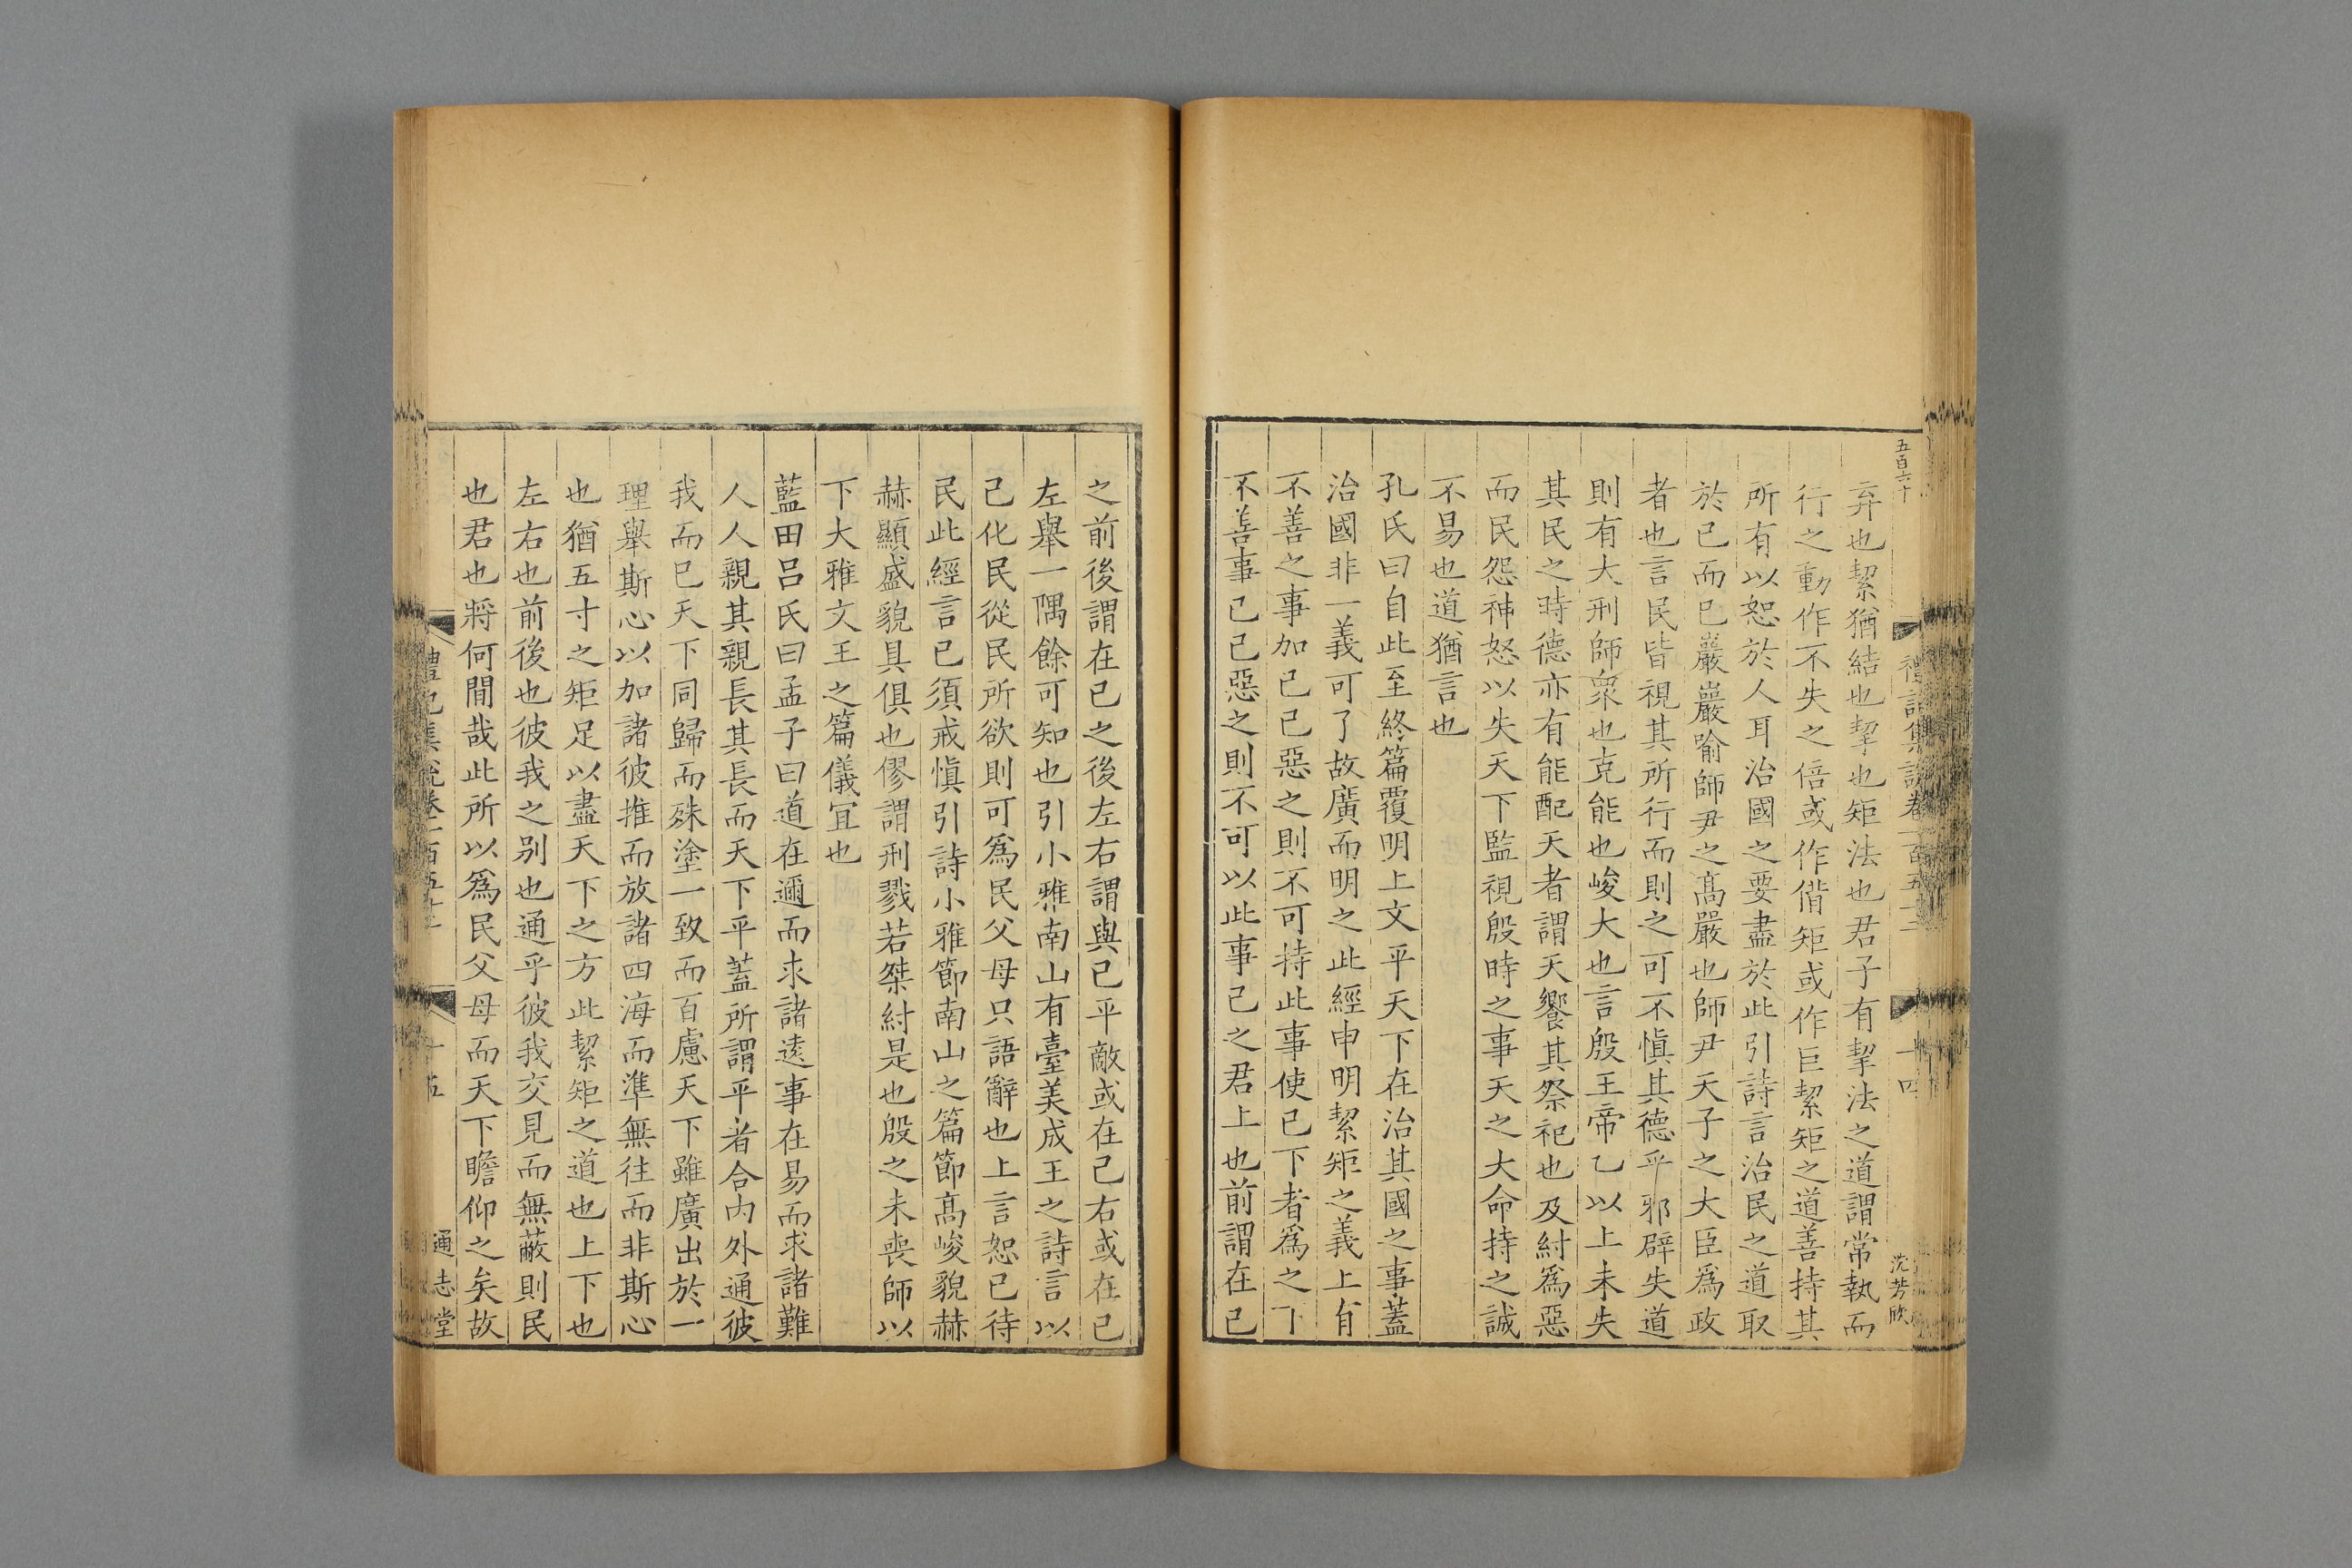 五百六十
禮記集說卷一百五十二
十四
沈芳欣
弃也絜猶結也挈也矩法也君子有挈法之道謂常執而
行之動作不失之倍或作偝矩或作巨絜矩之道善持其
所有以恕於人耳治國之要盡於此引詩言治民之道取
於已而已巖巖喻師尹之髙嚴也師尹天子之大臣爲政
者也言民皆視其所行而則之可不慎其德乎邪辟失道
則有大刑師衆也克能也峻大也言殷王帝乙以上未失
其民之時德亦有能配天者謂天饗其祭祀也及紂爲惡
而民怨神怒以失天下監視殷時之事天之大命持之誠
不易也道猶言也
孔氏曰自此至終篇覆明上文平天下在治其國之事蓋
治國非一義可了故廣而明之此經申明絜矩之義上有
不善之事加已己惡之則不可持此事使已下者爲之下
不善事己己惡之則不可以此事己之君上也前謂在己
之前後謂在已之後左右謂與已平敵或在己右或在己
左舉一隅餘可知也引小雅南山有臺美成王之詩言以
己化民從民所欲則可爲民父母只語辭也上言恕已待
民此經言已須戒慎引詩小雅節南山之篇節髙峻貌赫
赫顯盛貌具俱也僇謂刑戮若桀紂是也殷之未喪師以
下大雅文王之篇儀宜也
藍田吕氏曰孟子曰道在邇而求諸遠事在易而求諸難
人人親其親長其長而天下平蓋所謂平者合内外通彼
我而已天下同歸而殊塗一致而百慮天下雖廣出於一
理舉斯心以加諸彼推而放諸四海而準無往而非斯心
也猶五寸之矩足以盡天下之方此絜矩之道也上下也
左右也前後也彼我之别也通乎彼我交見而無蔽則民
也君也將何間哉此所以爲民父母而天下瞻仰之矣故
禮記集說卷一百五十二
十五
通志堂